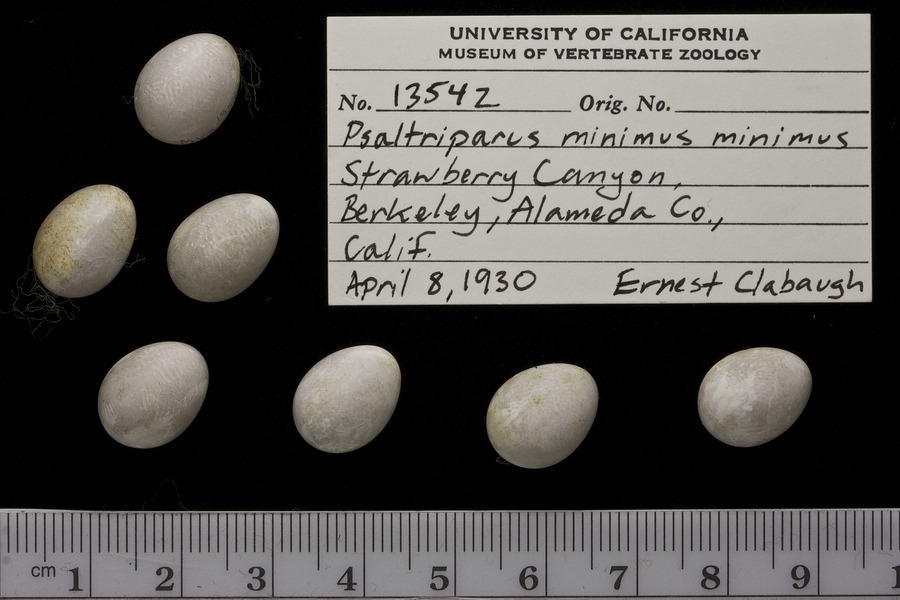 UNIVERSITY OF CALIFORNIA
MUSEUM OF VERTEBRATE ZOOLOGY
No. 13542 Orig. No.
Psaltriparus minimus minimus
Strawberry Canyon,
Berkeley, Alameda Co.,
Calif.
April 8, 1930 Ernest Clabaugh
cm 1 2 3 4 5 6 7 8 9 1